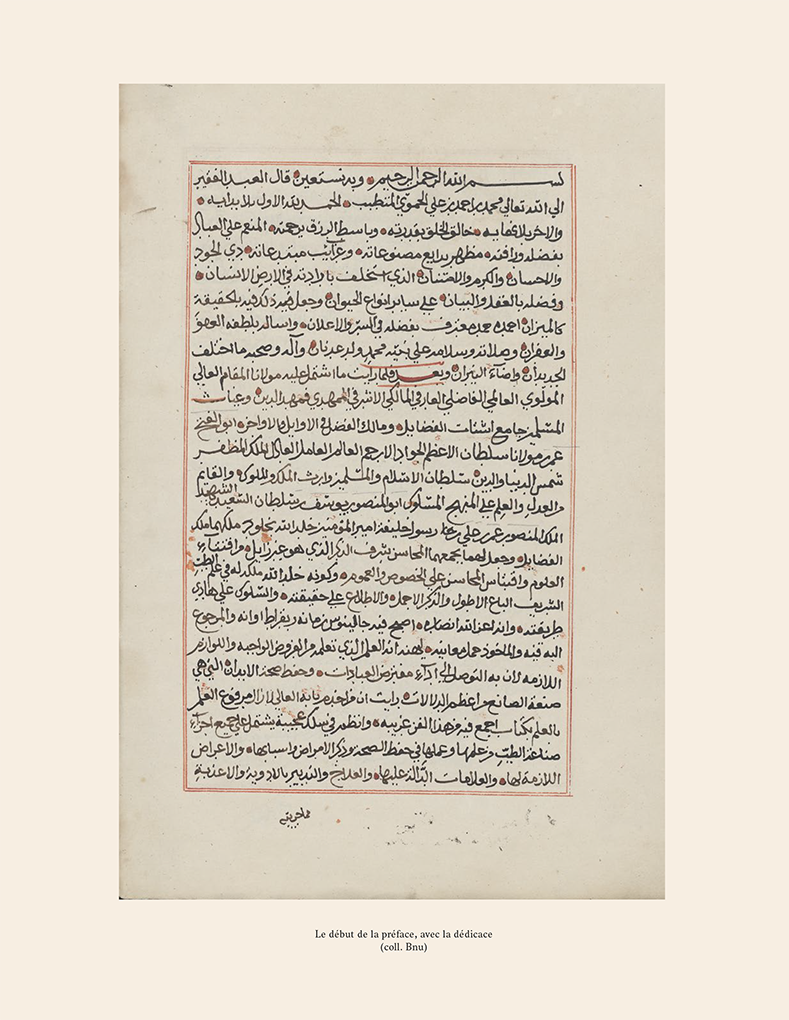 بسم الله الرحمن الرحيم وبه نستعين قال العبد الفقير
الي الله تعالي محمد بن احمد بن علي الحموي المتطبب الحمد لله الاول بلا بداية
والاخر بلا نهايه خالق الخلق بقدرته وباسط الرزق برحمته المنعم علي العباد
بفضله ورافته مظهر بدايع مصنوعاته وغرايب مبتدعاته ذي الجود
والاحسان والكرم والامتنان الذي استخلف بالارادته في الارض الانسان
وفضله بالعقل والبيان علي ساير انواع الحيوان وجعل فيه بالحقيقة
كالميزان احمده حمد معترف بفضله في السر والاعلان واساله بلطفه العفو
والغفران وصلاته وسلامه علي نبيه محمد ولد عدنان وآله وصحبه ما اختلف
الجديدان واضاء النيران وبعد فلما رايت ما اشتمل عليه مولانا المقام العالي
المولوي العالمي الفاضلي المالكي في الممهدي فمهد الدين وغياث
المسلمين جامع اشتات الفضايل ومالك الفضل في الاوايل والاواخر ابو الفتح
عمر بن مولانا سلطان الاعظم الجواد العالم العامل العادل الملك المظفر
شمس الدنيا والدين سلطان الاسلام والمسلمين وارث الملك والملوك والقايم
والعدل والعلم علي المنهج المسلوك ابو المنصور يوسف بن سلطان السعيد الشهيد
الملك المنصور عمر بن علي بن رسول خليفة امير المؤمنين خلد الله ملكهما
الفضايل وجعل لهما بجمعهما المحاسن شرف الذكر الذي هو غير زايل واقتناء
العلوم واقتباس المحاسن علي الخصوص والعموم وكونه خلد الله ملكه له في علم الطب
الشريف الباع الاطول والذكر الاجمل والاطلاع علي حقيقته والسلوك علي هادي
طريقته وانه اعز الله انصاره اصبح فيه جالينوس زمانه وبقراط اوانه والمرجوع
اليه فيه والماخوذ جمل معانيه لهذا العلم الذي تعلمه من الفروض الواجبه واللوازم
اللازمه لان به التوصل الي اداء مفترض العبادات وحفظ صحة الابدان التي هي
صنعة الصانع واعظم الدلالات رايت ان اخدم بابه العالي لازال مرفوع العلم
بالعلم بكتاب اجمع فيه من هذا الفن غريبه وانظم في سلك عجيبه يشتمل علي جميع اجزاء
صناعة الطب من علمها وعملها في حفظ الصحة وذكر الامراض واسبابها والاعراض
اللازمه لها والعلامات الدالة عليها والعلاج والتدبير بالادوية والاغذية
Le début de la préface, avec la dédicace
(coll. Bnu)